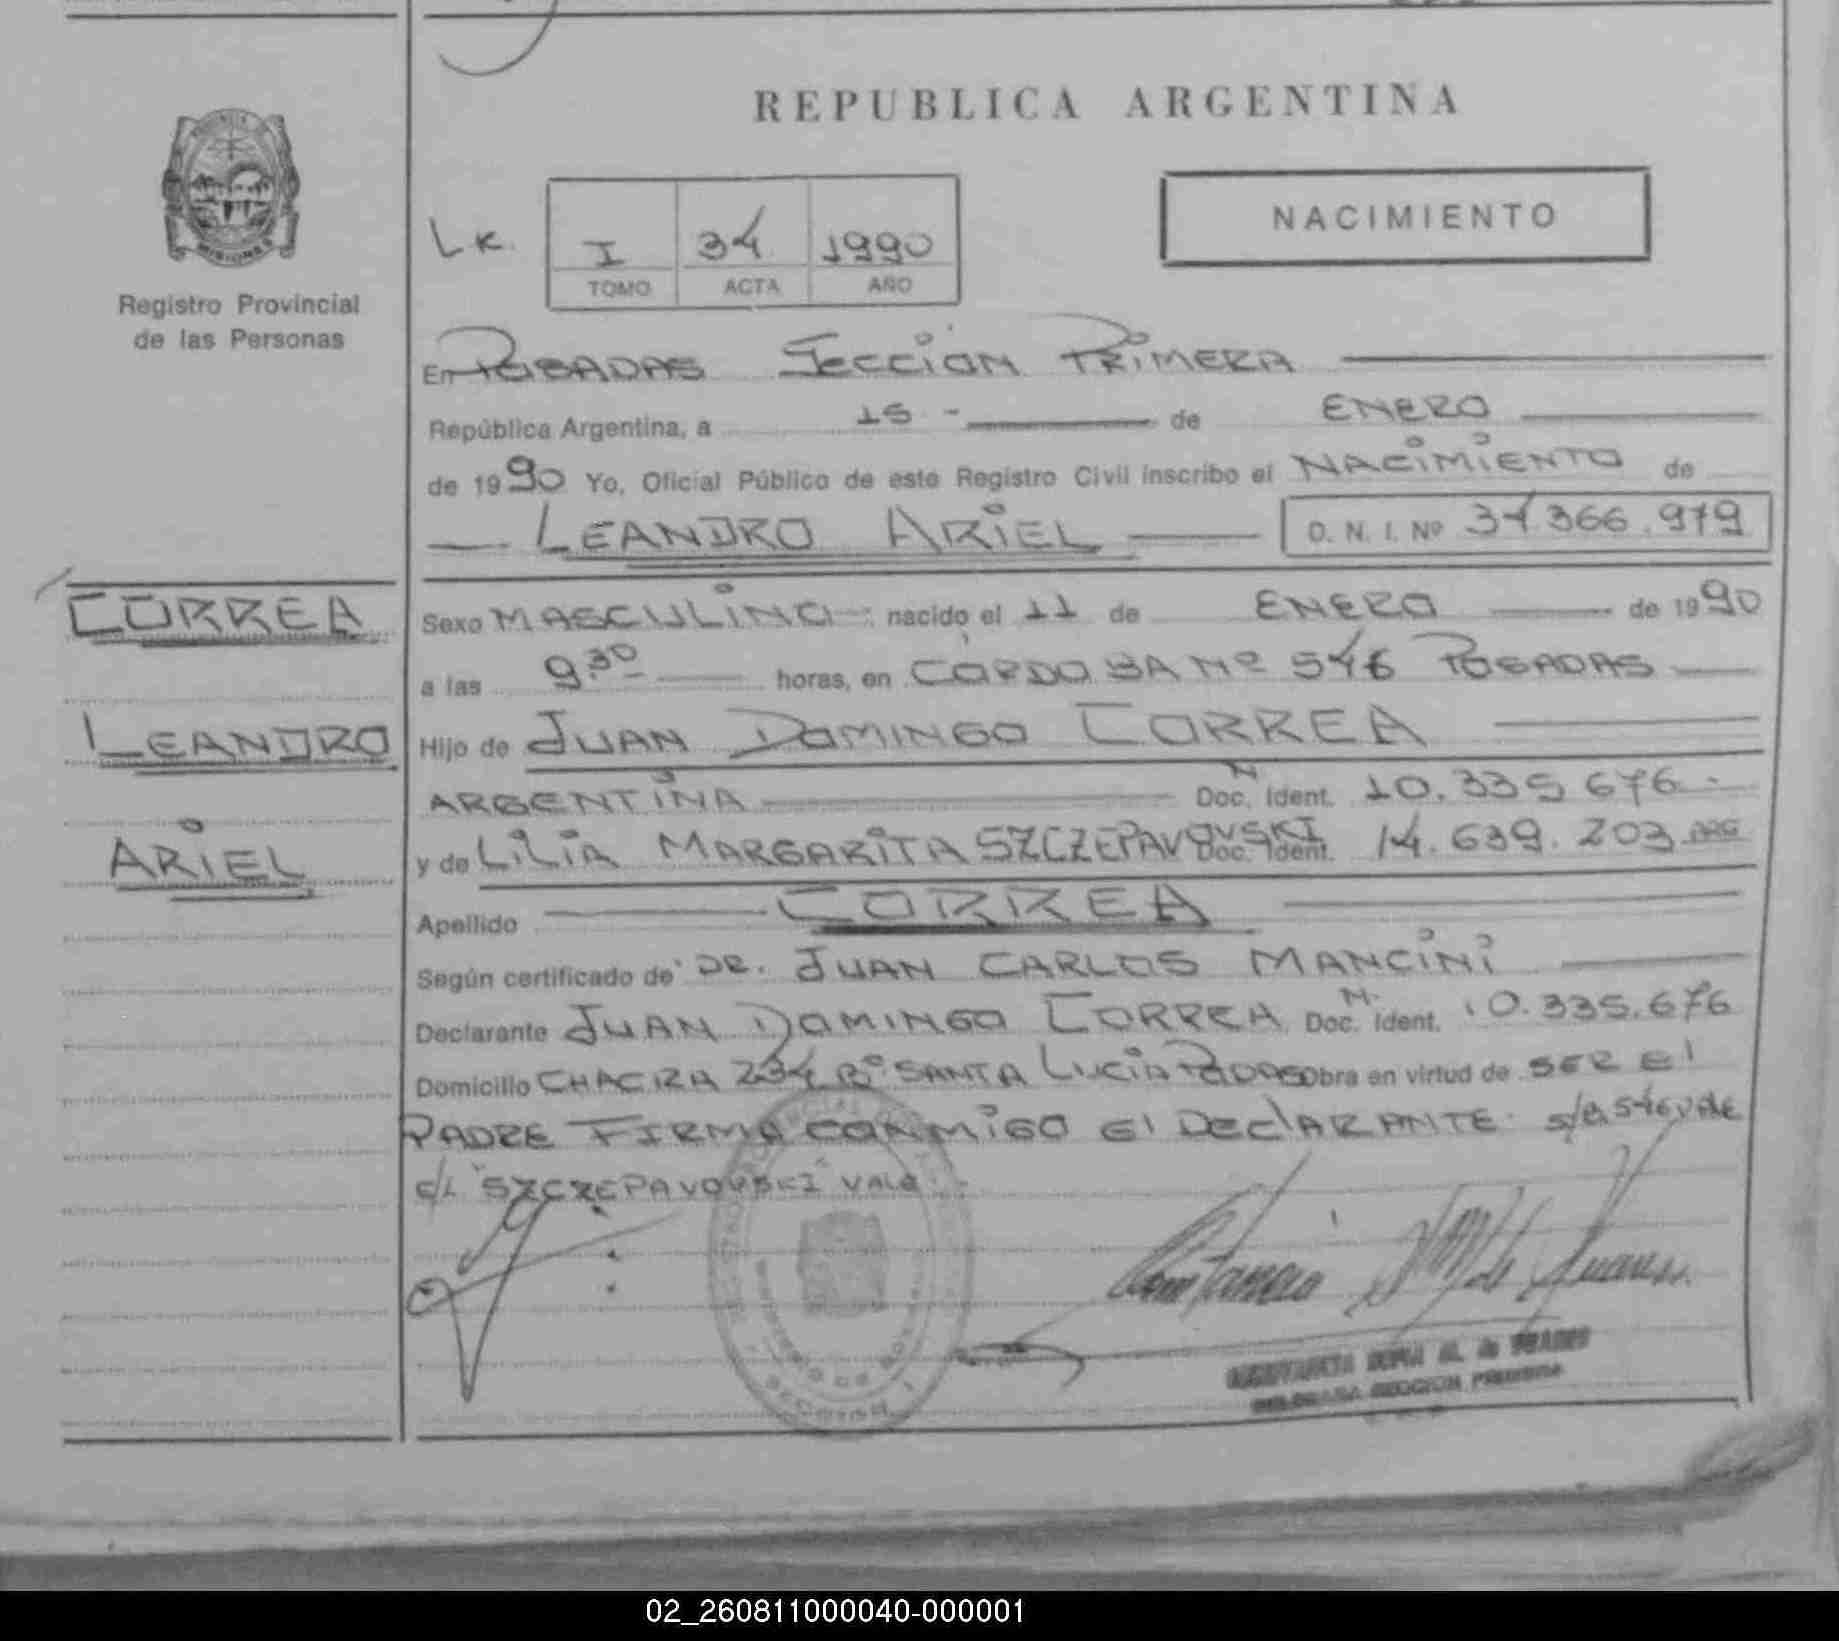 REPUBLICA ARGENTINA
PROVINCIA DE MISIONES
Registro Provincial
de las Personas
NACIMIENTO
LK. I 34 1990
TOMO ACTA AÑO
En POSADAS SECCION PRIMERA
República Argentina, a 15 - de ENERO
de 1990 Yo, Oficial Público de este Registro Civil inscribo el NACIMIENTO de
LEANDRO ARIEL D. N. I. Nº 34.366.979
CORREA
LEANDRO
ARIEL
Sexo MASCULINO; nacido el 11 de ENERO de 1990
a las 9.30 horas, en CORDOBA Nº 546 POSADAS
Hijo de JUAN DOMINGO CORREA
ARGENTINA Doc. Ident. M 10.335.676.
y de LILIA MARGARITA SZCZEPAVOVSKI Doc. Ident. 14.639.203 ARG
Apellido CORREA
Según certificado de DR. JUAN CARLOS MANCINI
Declarante JUAN DOMINGO CORREA Doc. Ident. M. 10.335.676
Domicilio CHACRA 234 Bº SANTA LUCIA Pdas Obra en virtud de SER El
PADRE FIRMA CONMIGO El DEClARANTE. S/R 546 VALE
E/L "SZCZEPAVOVSKI" VALE.
02_260811000040-000001